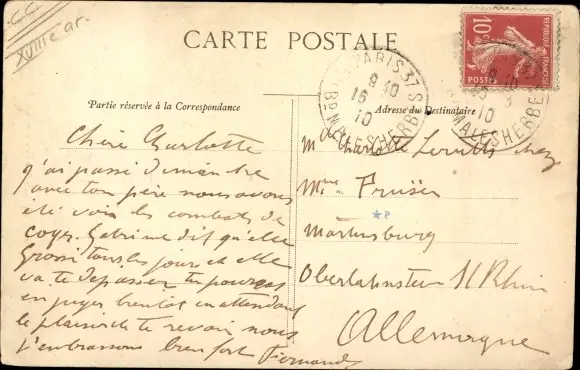 CC
XVIIIe ar.
CARTE POSTALE
Partie réservée à la Correspondance
Adresse du Destinataire
PARIS 37
9 10
16
10
Bd MALESHERBES
10
POSTES
REPUBLIQUE FRANÇAISE
MALESHERBES
Chère Charlotte
j'ai passé dimanche
avec ton père nous avons
été voir les combats de
coqs Gabrielle dit qu'elle
grossi tous les jours et elle
va te dépasser tu pourras
en juger bientôt en attendant
le plaisir de te revoir nous
t'embrassons bien fort Fernand
Mlle Charlotte chez
Mme Prusser
*P
Martinsburg
Oberlahnstein s/ Rhin
Allemagne